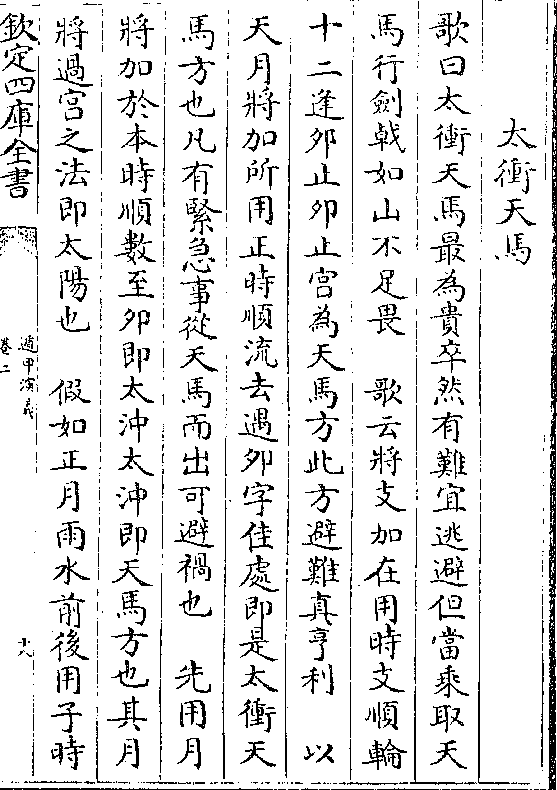 太衝天馬
歌曰太衝天馬最為貴卒然有難宜逃避但當乘取天
馬行劍戟如山不足畏　歌云將支加在用時支順輪
十二逢夘止夘止宮為天馬方此方避難真亨利　以
天月將加所用正時順流去遇夘字住處即是太衝天
馬方也凡有緊急事從天馬而出可避禍也　先用月
將加於本時順數至夘即太沖太沖即天馬方也其月
將過宮之法即太陽也　假如正月雨水前後用子時
欽定四庫全書
遁甲演義
卷二
十八